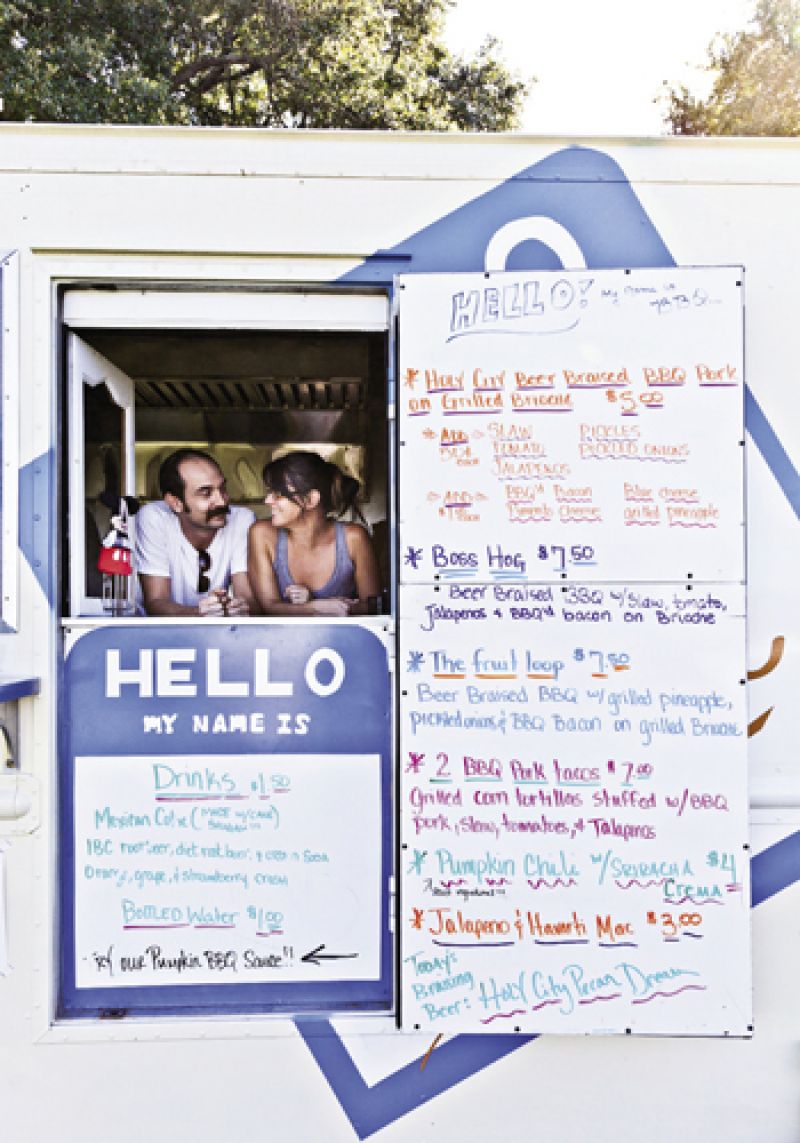 HELLO! My name is
* HOLY CITY Beer Braised BBQ Pork
on Grilled Brioche $5.00
ADD SLAW PICKLES
TOMATO PICKLED ONIONS
JALAPENOS
ADD BBQ'd Bacon Blue cheese
Pimento Cheese grilled pineapple
* BOSS HOG $7.50
Beer Braised BBQ w/slaw, tomato,
Jalapenos & BBQ'd bacon on Brioche
* The fruit loop $7.50
Beer Braised BBQ w/grilled pineapple,
pickled onions & BBQ Bacon on grilled Brioche
* 2 BBQ Pork tacos $7.00
Grilled corn tortillas stuffed w/BBQ
pork, slaw, tomatoes, & Jalapenos
* Pumpkin Chili w/SRIRACHA $4
CREMA
* Jalapeno & Havarti Mac $3.00
Today's
Braising
Beer: Holy City Pecan Dream
HELLO
MY NAME IS
Drinks $1.50
Mexican Coke (MADE W/CANE
IBC rootbeer, diet rootbeer, & cream Soda
Orange, grape, & strawberry crush
BOTTLED WATER $1.00
try our Pumpkin BBQ Sauce!!